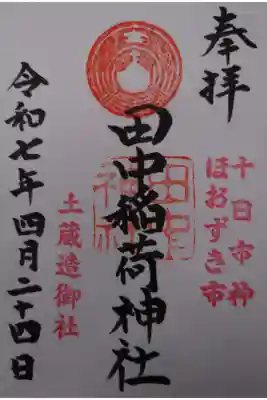 奉拝
十日市神
ほおずき市
田中稲荷神社
土蔵造御社
令和七年四月二十四日